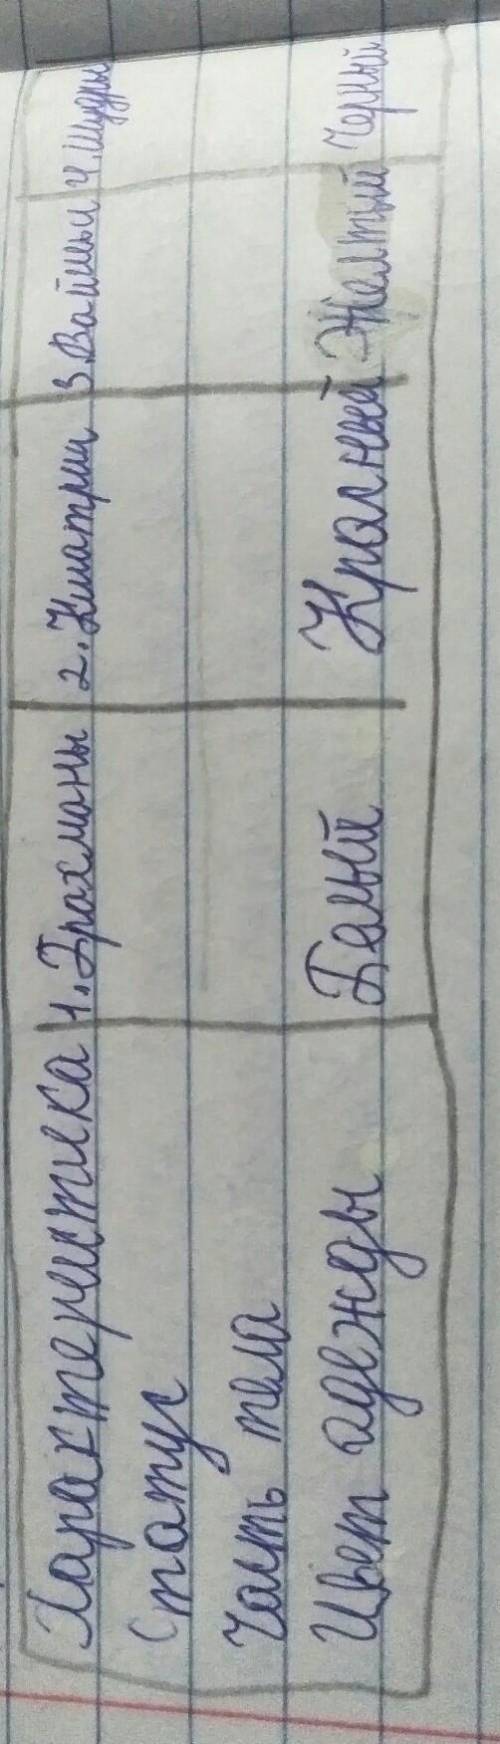 Характеристика 1. Брахманы 2. Кшатрии 3. Вайшьи 4. Шудры
Статус
Часть тела
Цвет одежды Белый Красный Желтый Черный